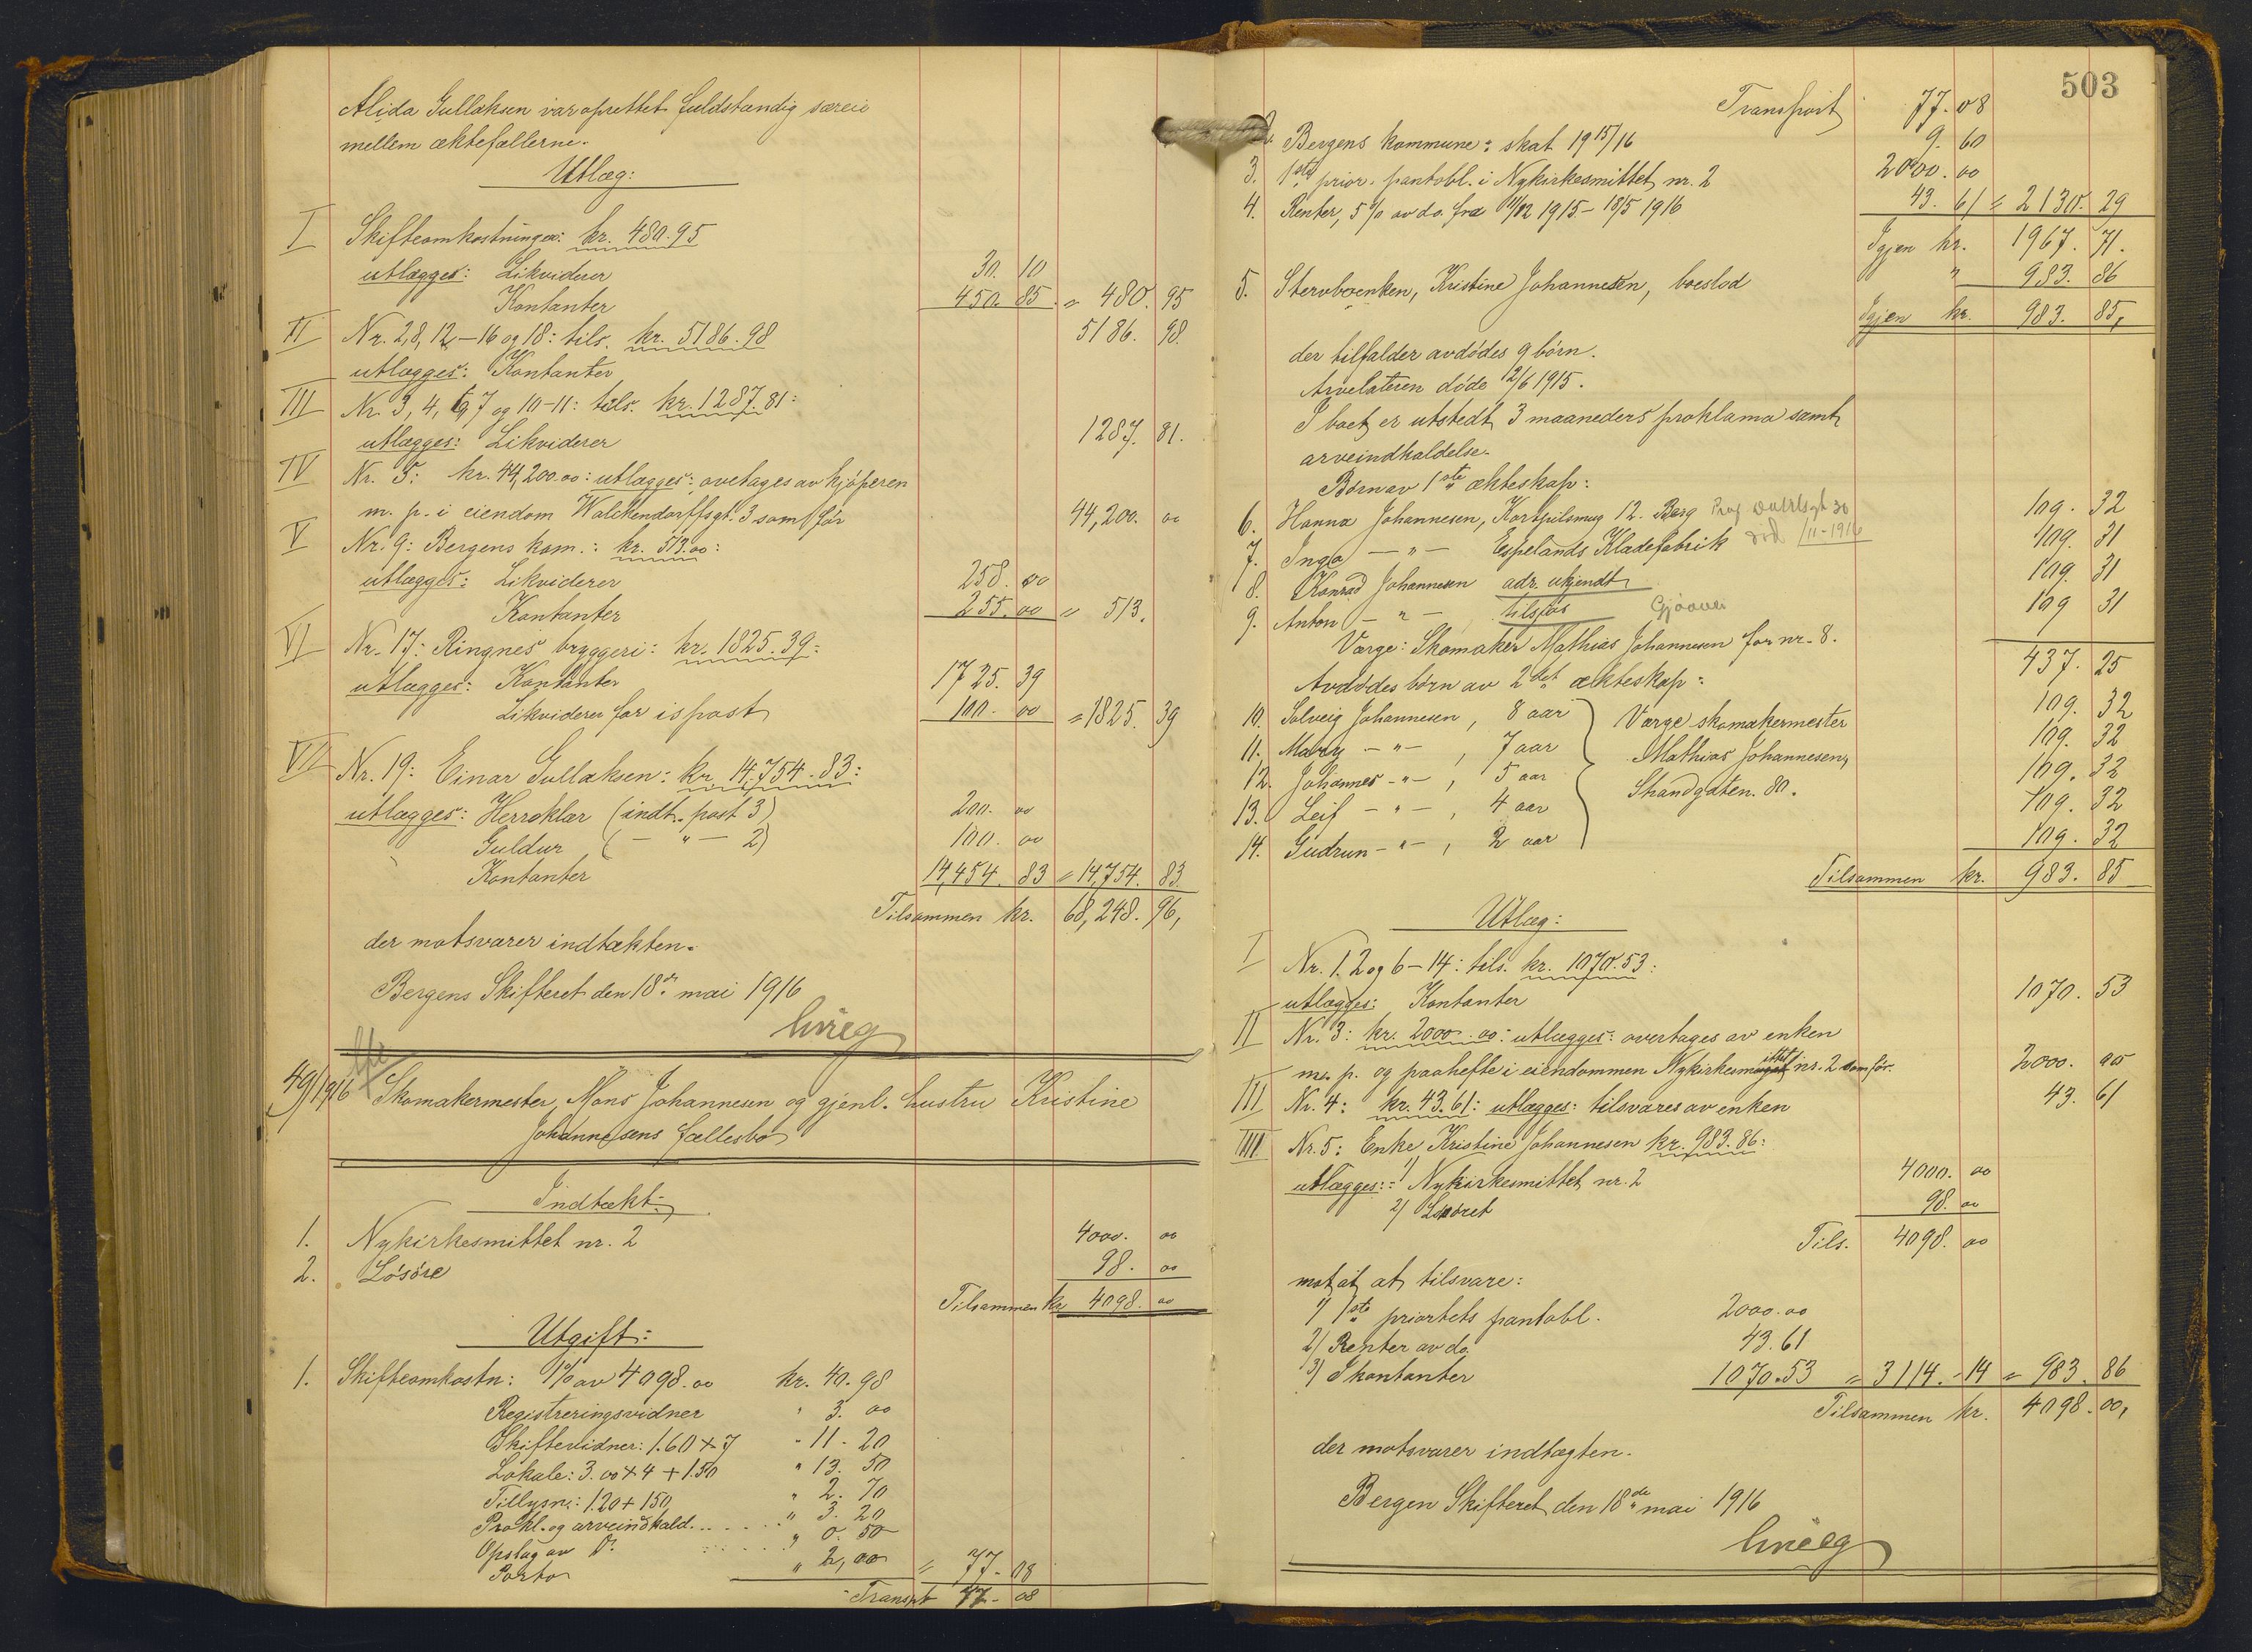 Alida Gullaksen var oprettet fuldstændig særeie
mellem ægtefællerne.
Utlæg:
I Skifteomkostninger: kr. 480.95
utlægges: Likviderer 30. 10
Kontanter 450. 85 = 480. 95
II Nr. 2, 8, 12-16 og 18: tils. kr. 5186.98 5186. 98.
utlægges: Kontanter
III Nr. 3, 4, 6, 7 og 10-11: tils. kr. 1287.81:
utlægges: Likviderer 1287. 81.
IV Nr. 5: kr. 44,200.00: utlægges: overtages av kjøperen
m. p. i eiendom Walckendorffsgt. 3 som før 44,200. 00
V Nr. 9: Bergens kom.: kr. 513.00:
utlægges: Likviderer 258. 00
Kontanter 255. 00 = 513.
VI Nr. 17: Ringnes bryggeri: kr. 1825.39:
utlægges: Kontanter 1725. 39
Likviderer for ispost 100. 00 = 1825. 39
VII Nr. 19: Einar Gullaksen: kr. 14,754.83:
utlægges: Herreklær (indt. post 3) 200. 00
Guldur ( — " — 2) 100. 00
Kontanter 14,454. 83 = 14,754. 83
Tilsammen kr. 68,248. 96,
der motsvarer indtækten.
Bergens Skifteret den 18de mai 1916
49/1916 Skomakermester Mons Johannesen og gjenl. hustru Kristine
Johannesens fællesbo
Indtækt:
1. Nykirkesmittet nr. 2 4000. 00
2. Løsøre 98. 00
Tilsammen kr 4098. 00
Utgift:
1. Skifteomkostn: 1% av 4098.00 kr. 40.98
Registreringsvidner " 3. 00
Skiftevidner: 1.60 x 7 - 11 - 20
Lokale: 3.00 x 4 + 1.50 " 13. 50
Tillysn: 1.20 + 1.50 " 2. 70
Prokl. og arveindkald. . . . . . " 3. 20
Opslag av D: . . . . . " 0. 50
Porto " 2,00 = 77. 08
Transpt 77. 08
503
Transport 77.08
2. Bergens kommune: skat 1915/16 9. 60
3. 1ste prior. pantobl. i Nykirkesmittet nr. 2 2000. 00
4. Renter, 5% av do. fra 11/12 1915 - 18/5 1916 43. 61 = 2130. 29
Igjen kr. 1967. 71.
5. Stervboenken, Kristine Johannesen, boeslod " 983. 86
Igjen kr. 983. 85,
der tilfalder avdødes 9 børn.
Arvelateren døde 12/6 1915.
I boet er utstedt 3 maaneders proklama samt
arveindkaldelse.
Børn av 1ste ækteskap:
6. Hanna Johannesen, Korspilsmug 12. Berg 109. 32
7. Inga — " — Espelands Klædefabrik 11-1916 109. 31
8. Konrad Johannesen adr. ukjendt 109. 31
9. Anton — " — tilsjøs 109 31
Værge: Skomaker Mathias Johannesen for nr. 8.
437. 25
Avdødes børn av 2det ækteskap:
10. Solveig Johannesen, 8 aar } Værge skomakermester 109. 32
11. Mary — " — , 7 aar Mathias Johannesen, 109. 32
12. Johannes — " — , 5 aar Strandgaten. 80. 109. 32
13. Leif — " — , 4 aar 109. 32
14. Gudrun — " — , 2 aar 109. 32
Tilsammen kr. 983. 85
Utlæg:
I Nr. 1. 2 og 6-14: tils. kr. 1070.53:
utlægges: Kontanter 1070. 53
II Nr. 3: kr. 2000.00: utlægges: overtages av enken
m. p. og paahefte i eiendommen Nykirkesmittet nr. 2 som før. 2000. 00
III Nr. 4: kr. 43.61: utlægges: tilsvares av enken 43. 61
IIII Nr. 5: Enke Kristine Johannesen kr. 983.86:
utlægges: 1) Nykirkesmittet nr. 2 4000. 00
2) Løsøret 98. 00
Tils. 4098. 00
mot at at tilsvare:
1) 1ste priortets pantobl. 2000.00
2) Renter av do 43.61
3) I kontanter 1070.53 = 3114.-14 = 983. 86
Tilsammen kr. 4098.00,
der motsvarer indtægten.
Bergen Skifteret den 18de mai 1916